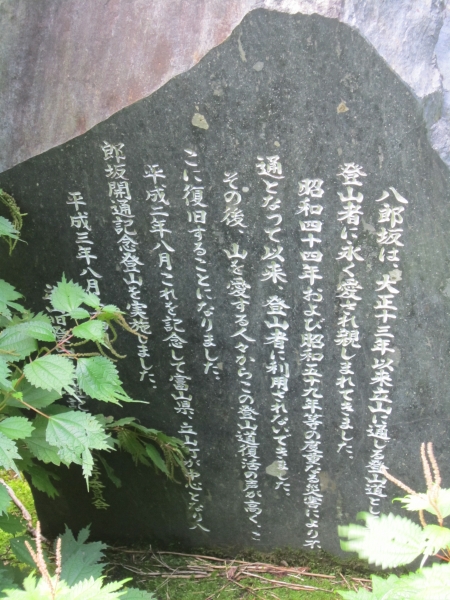 八郎坂は、大正十三年以来立山に通じる登山道とし
登山者に永く愛され親しまれてきました。
昭和四十四年および昭和五十九年等の度重なる災害により不
通となって以来、登山者に利用されないできました。
その後、山を愛する人々からこの登山道復活の声が高く、こ
こに復旧することになりました。
平成二年八月これを記念して富山県、立山町が中心となり八
郎坂開通記念登山を実施しました。
平成三年八月